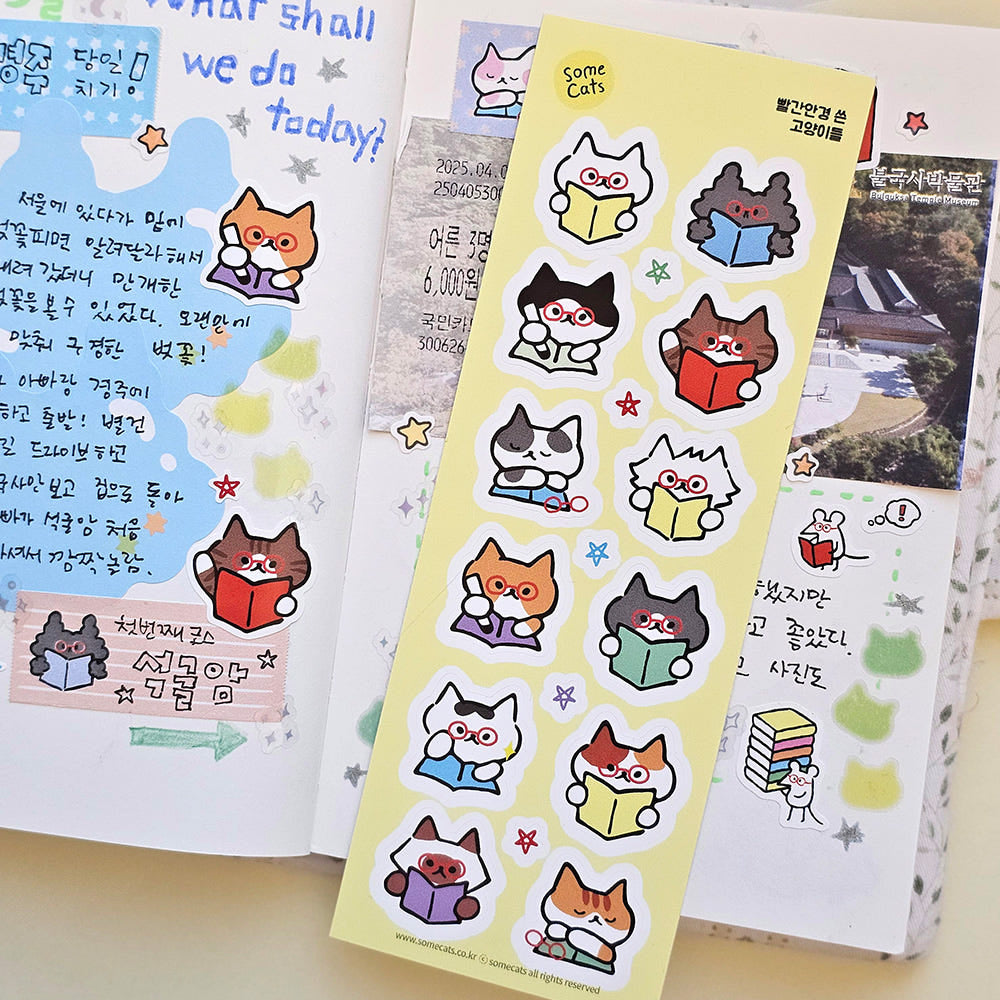 what shall
we do
today?
경주 당일
치기!
서울에 있다가 밑에
벚꽃피면 알려달라해서
내려 갔더니 만개한
벚꽃을 볼 수 있었다. 오랜만에
맞춰 구경한 벚꽃!
아빠랑 경주에
하고 출발! 별건
드라이브하고
보고 겁으로 돌아
석굴암 처음
깜짝 놀람.
첫번째 코스
석굴암
some
cats
빨간안경 쓴
고양이들
www.somecats.co.kr ⓒ somecats all rights reserved
2025.04.0
250405300
어른 3명
6,000원
국민카
300626
불국사박물관
Bulguksa Temple Museum
!
했지만
고 좋았다.
사진도